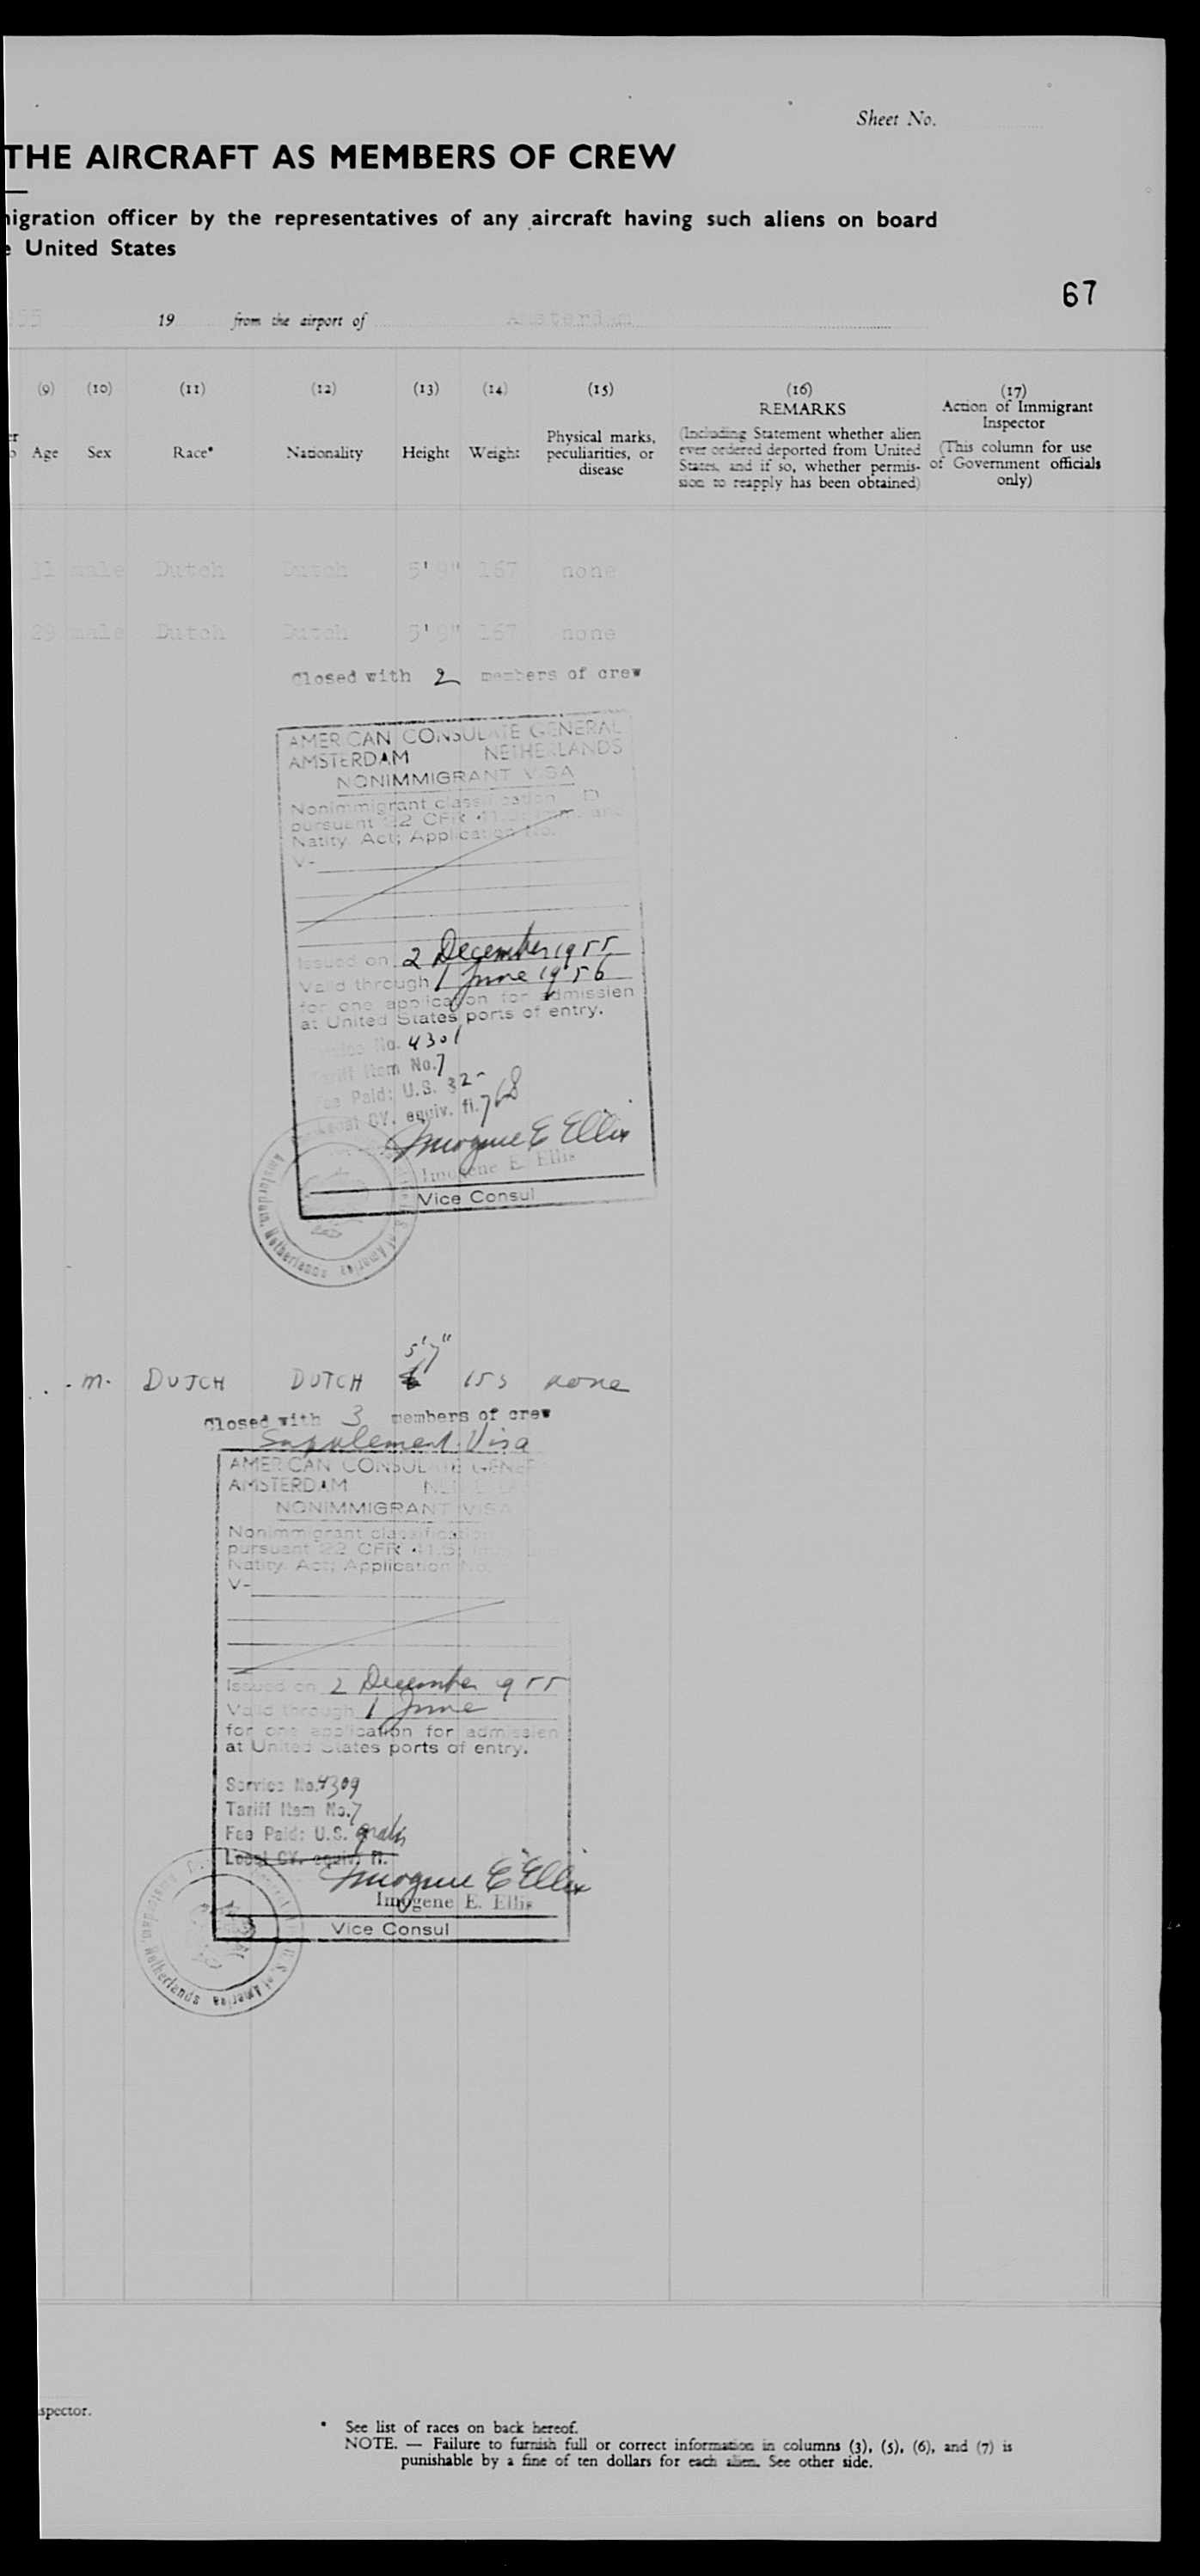 Sheet No.
THE AIRCRAFT AS MEMBERS OF CREW
igration officer by the representatives of any aircraft having such aliens on board
United States
67
19 from the airport of Amsterdam
(9) (10) (11) (12) (13) (14) (15) (16) (17)
Age Sex Race* Nationality Height Weight Physical marks, peculiarities, or disease
REMARKS
(Including Statement whether alien
ever ordered deported from United
States, and if so, whether permis-
sion to reapply has been obtained)
Action of Immigrant
Inspector
(This column for use
of Government officials
only)
31 male Dutch Dutch 5'9" 167 none
29 male Dutch Dutch 5'9" 167 none
Closed with 2 members of crew
AMERICAN CONSULATE GENERAL
AMSTERDAM NETHERLANDS
NONIMMIGRANT VISA
Nonimmigrant classification D
pursuant 22 CFR 41.5; Imm. and
Natity. Act; Application No.
V-
Issued on 2 December 1955
Valid through 1 June 1956
for one application for admission
at United States ports of entry.
Service No. 4301
Tariff Item No. 7
Fee Paid: U.S. 32-
Local CY. equiv. fl. 768
Imogene E Ellis
Imogene E. Ellis
Vice Consul
Amsterdam, Netherlands U.S. of America
5'7"
m. DUTCH DUTCH 155 none
Closed with 3 members of crew
Supplement Visa
AMERICAN CONSULATE GENER
AMSTERDAM
NONIMMIGRANT VISA
Nonimmigrant classification
pursuant 22 CFR 41.5;
Natity. Act; Application No.
V-
Issued on 2 December 1955
Valid through 1 June
for one application for admission
at United States ports of entry.
Service No. 4309
Tariff Item No. 7
Fee Paid: U.S. gratis
Local CY. equiv. fl.
Imogene E Ellis
Imogene E. Ellis
Vice Consul
Amsterdam, Netherlands U.S. of America
spector.
* See list of races on back hereof.
NOTE. — Failure to furnish full or correct information in columns (3), (5), (6), and (7) is
punishable by a fine of ten dollars for each alien. See other side.